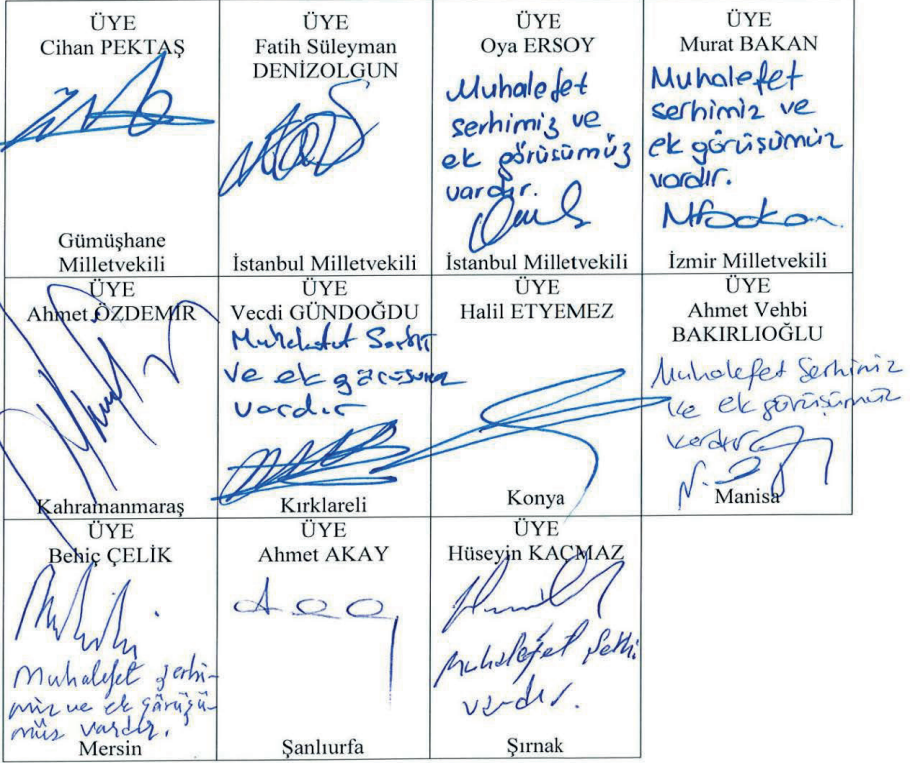 ÜYE
Cihan PEKTAŞ
Gümüşhane
Milletvekili
ÜYE
Fatih Süleyman
DENİZOLGUN
İstanbul Milletvekili
ÜYE
Oya ERSOY
Muhalefet
serhimiz ve
ek görüsümüz
vardır.
İstanbul Milletvekili
ÜYE
Murat BAKAN
Muhalefet
serhimiz ve
ek görüşümüz
vardır.
İzmir Milletvekili
ÜYE
Ahmet ÖZDEMİR
Kahramanmaraş
ÜYE
Vecdi GÜNDOĞDU
ve ek
vardır
Kırklareli
ÜYE
Halil ETYEMEZ
Konya
ÜYE
Ahmet Vehbi
BAKIRLIOĞLU
Muhalefet Serhimiz
ve ek görüşümüz
vardır
Manisa
ÜYE
Behiç ÇELİK
Muhalefet şerhi-
miz ve ek görüşü-
müz vardır.
Mersin
ÜYE
Ahmet AKAY
Şanlıurfa
ÜYE
Hüseyin KAÇMAZ
Muhalefet Şerhi
vardır.
Şırnak